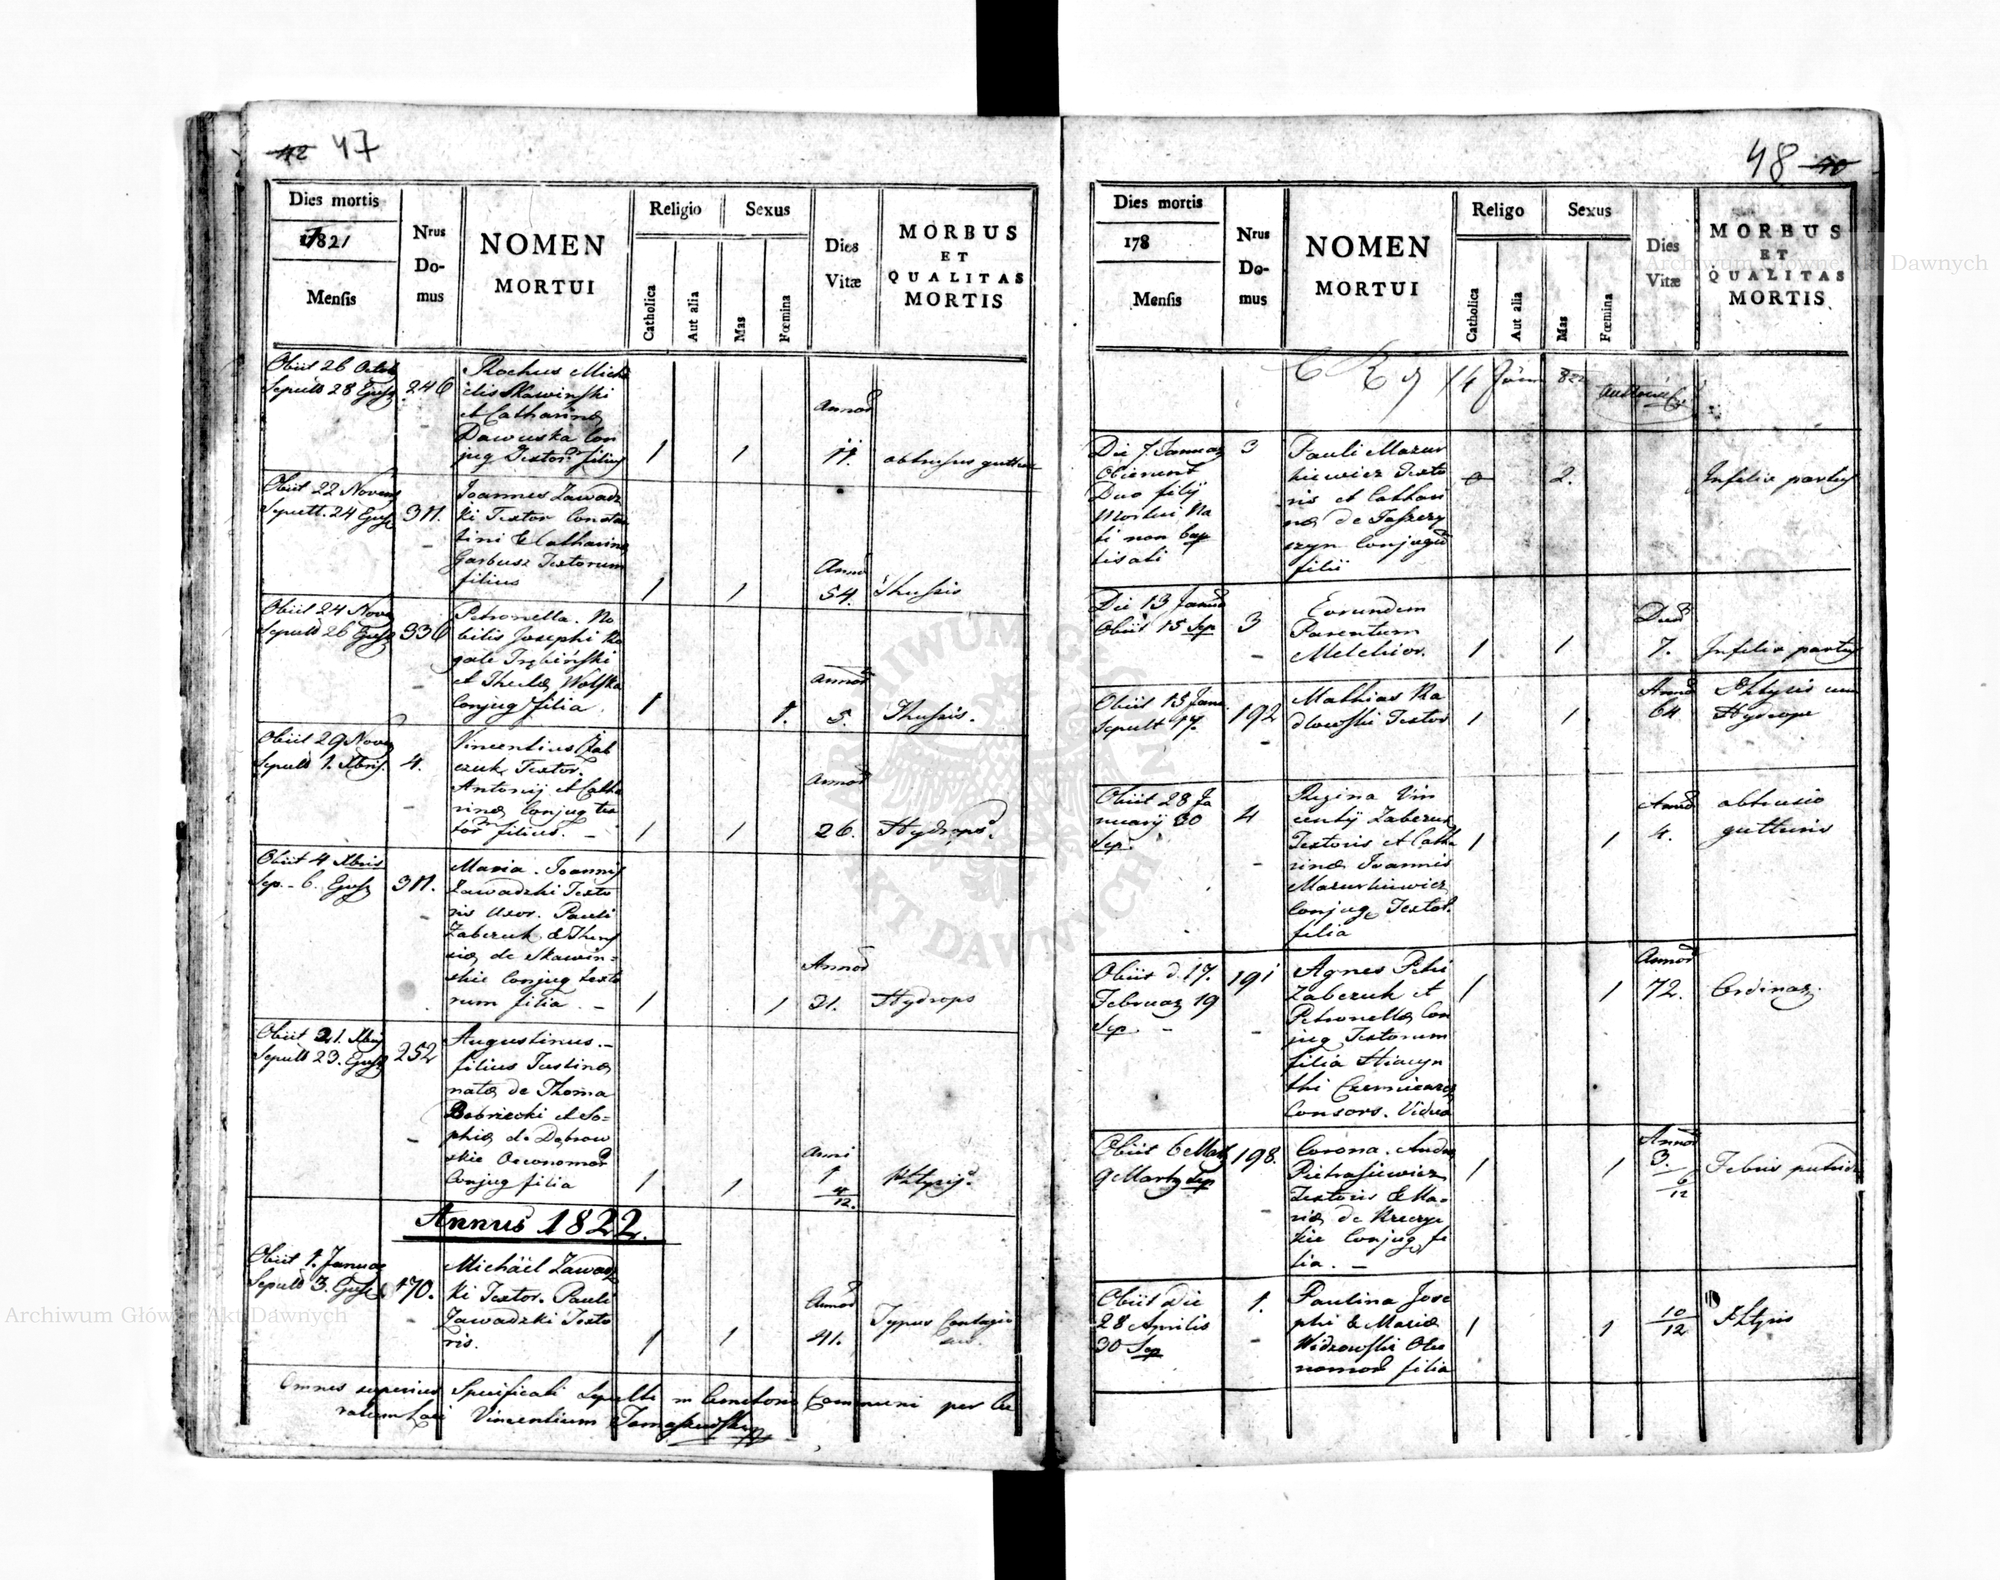 42 47
Dies mortis
1821
Mensis
Nrus
Do-
mus
NOMEN
MORTUI
Religio
Catholica
Aut alia
Sexus
Mas
Fœmina
Dies
Vitæ
MORBUS
ET
QUALITAS
MORTIS
Obiit 26 Octob
Sepult 28 Ejusd
246
Rochus Micha
elis Skawinski
et Catharinæ
Dawuska Con
jug Textor filius
1
1
Annor
11.
obtrusus guttur
Obiit 22 Novem
Sepult. 24 Ejusd
311.
Joannes Zawadz
ki Textor Constan
tini & Catharinæ
Garbusz Textorum
filius
1
1
Anno
54.
Thussis
Obiit 24 Nove
Sepult 26 Ejusd
336
Petronella. No
bilis Josephi Ro
gale Trębiński
et Theclæ Wolska
Conjug filia.
1
1.
Annor
5.
Thussis.
Obiit 29 Nove
Sepult 1. Xbris.
4.
Vincentius Zab
czuk Textor.
Antonij et Catha
rinæ Conjug tex
tor filius. –
1
1
Annor
26.
Hydrops.
Obiit 4 Xbris
Sep. – 6. Ejusd
311.
Maria. Joannis
Zawadzki Texto
ris Uxor. Pauli
Zabczuk & There
siæ de Skawin-
skie Conjug texto
rum filia. –
1
1
Annor
31.
Hydrops
Obiit 21. Xbris
Sepult 23. Ejusd
252
Augustinus. –
filius Justinæ
natæ de Thoma
Bobrzecki et So-
phiæ de Dąbrow
skie Oeconomor
Conjug filia
1
1
Anni
1
4/12.
Phtysis.
Annus 1822.
Obiit 1. Januar
Sepult 3. Ejusd
170.
Michäel Zawadz
ki Textor. Pauli
Zawadzki Texto
ris.
1
1
Annor
41.
Typus Contagio
sus.
Omnes superius Specificati Sepulti in Cemeterio Communi per Cu
ratum Loci Vincentium Tomaszewski
48 40
Dies mortis
178
Mensis
Nrus
Do-
mus
NOMEN
MORTUI
Religo
Catholica
Aut alia
Sexus
Mas
Fœmina
Dies
Vitæ
MORBUS
ET
QUALITAS
MORTIS
14 822
Die 7. Januar
Obierunt
Duo filij
Mortui Na
ti non bap
tisati
3
Pauli Mazur
kiewicz Texto
ris et Cathari
næ de Jaszczy
szyn Conjugum
filii
0
2.
Infelix partus
Die 13 Januar
Obiit 15 Sep
3
Eorundem
Parentum
Melchior.
1
1
Dier
7.
Infelix partus
Obiit 15 Janu
Sepult 17.
192
Mathias Ra
dlowski Textor
1
1
Annor
64
Phtysis cum
Hydrope
Obiit 28 Ja
nuarij 30
Sep.
4
Regina Vin
centij Zabczuk
Textoris et Catha
rinæ Joannis
Mazurkiewicz
Conjug Textor.
filia
1
1
Annor
4.
obtrusio
gutturis
Obiit d. 17.
Februar 19
Sep. –
191
Agnes Petri
Zabczuk et
Petronellæ Con
jug Textorum
filia Hiacyn
thi Czemierys
Consors. Vidua
1
1
Annor
72.
Ordinar.
Obiit 6 Mart
9 Martij Sep
198.
Corona. Andre
Pietrasiewicz
Textoris & Ma-
riæ de Krzczy
kie Conjug fi
lia. –
1
1
Annor
3.
6/12
Febris putrida
Obiit Die
28 Aprilis
30 Sep
1.
Paulina Jose
phi & Mariæ
Widzowski Oeco
nomor filia
1
1
10/12
Phtysis
Archiwum Główne Akt Dawnych
Archiwum Główne Akt Dawnych
ARCHIWUM GŁÓWNE
AKT DAWNYCH